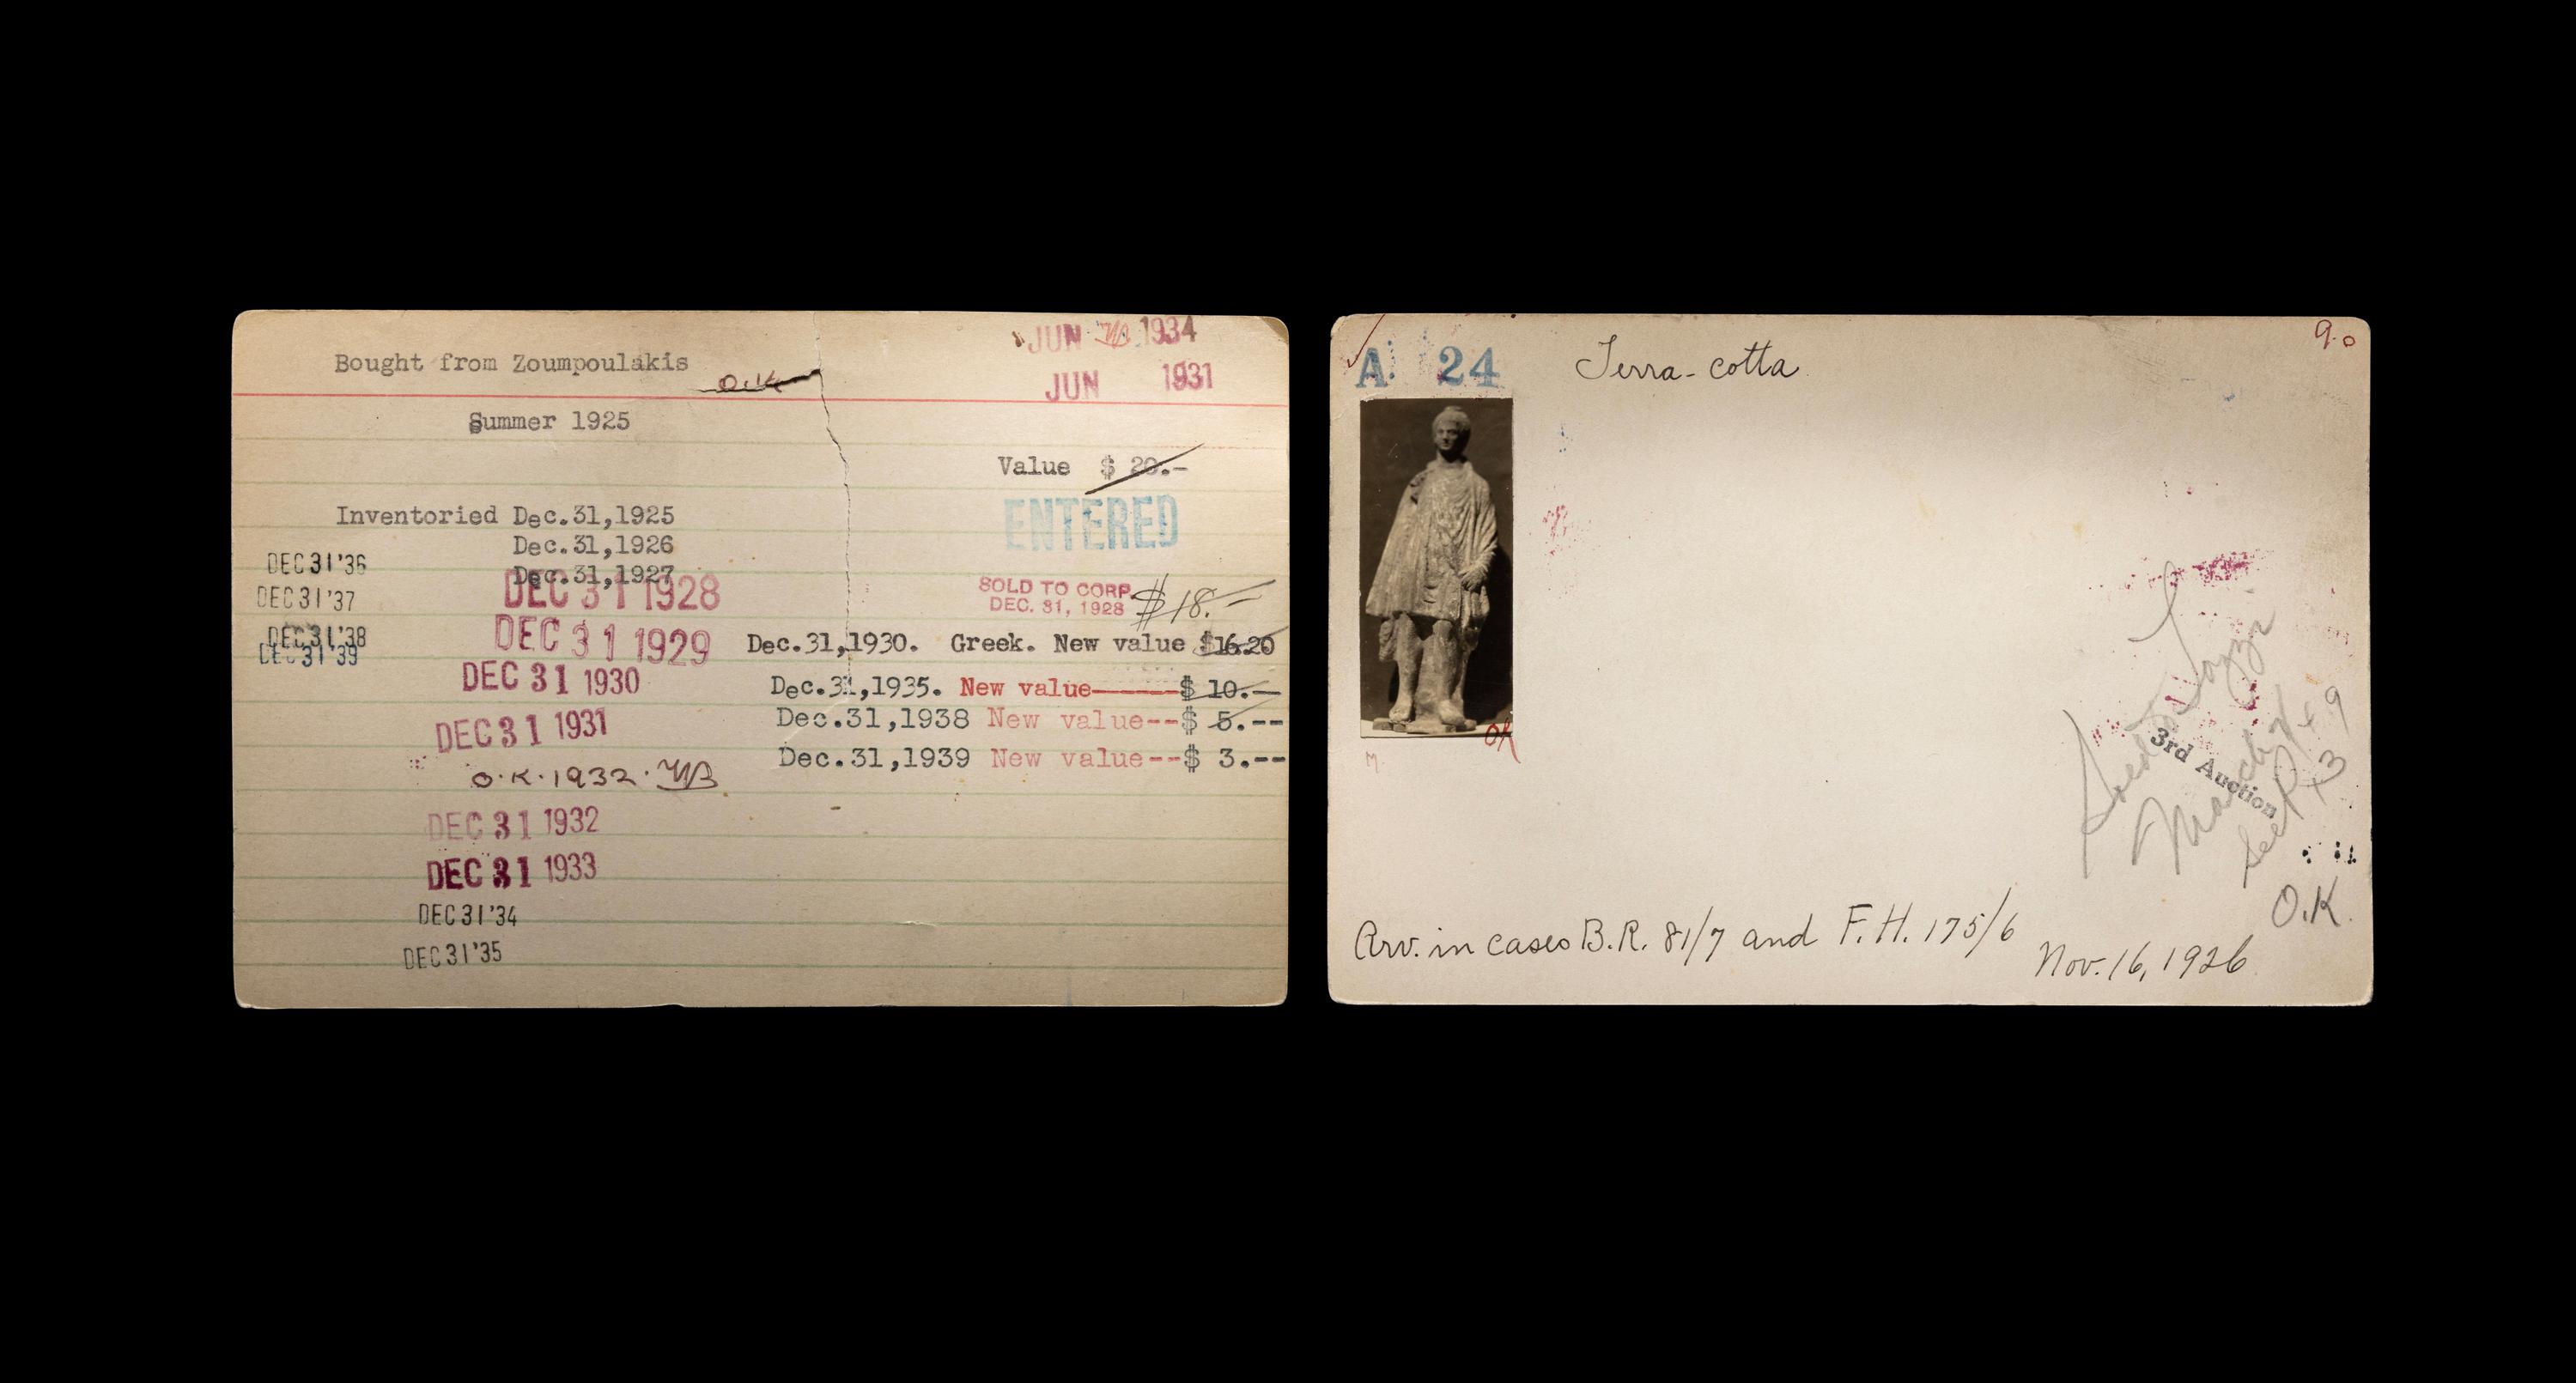 Bought from Zoumpoulakis
O.K
JUN 1934
JUN 1931
Summer 1925
Value $ 20.-
ENTERED
Inventoried Dec.31,1925
Dec.31,1926
Dec.31,1927
DEC 31 1928
DEC 31 1929
DEC 31 1930
DEC 31 1931
O.K. 1932.
DEC 31 1932
DEC 31 1933
DEC 31 '34
DEC 31 '35
DEC 31 '36
DEC 31 '37
DEC 31 '38
DEC 31 '39
SOLD TO CORP.
DEC. 31, 1928
$18.-
Dec.31,1930. Greek. New value $16.20
Dec.31,1935. New value------$ 10.--
Dec.31,1938 New value--$ 5.--
Dec.31,1939 New value--$ 3.--
A 24
Terra-cotta
9.0
OK
M.
3rd Auction
O.K.
Arv. in cases B.R. 81/7 and F.H. 175/6
Nov. 16, 1926